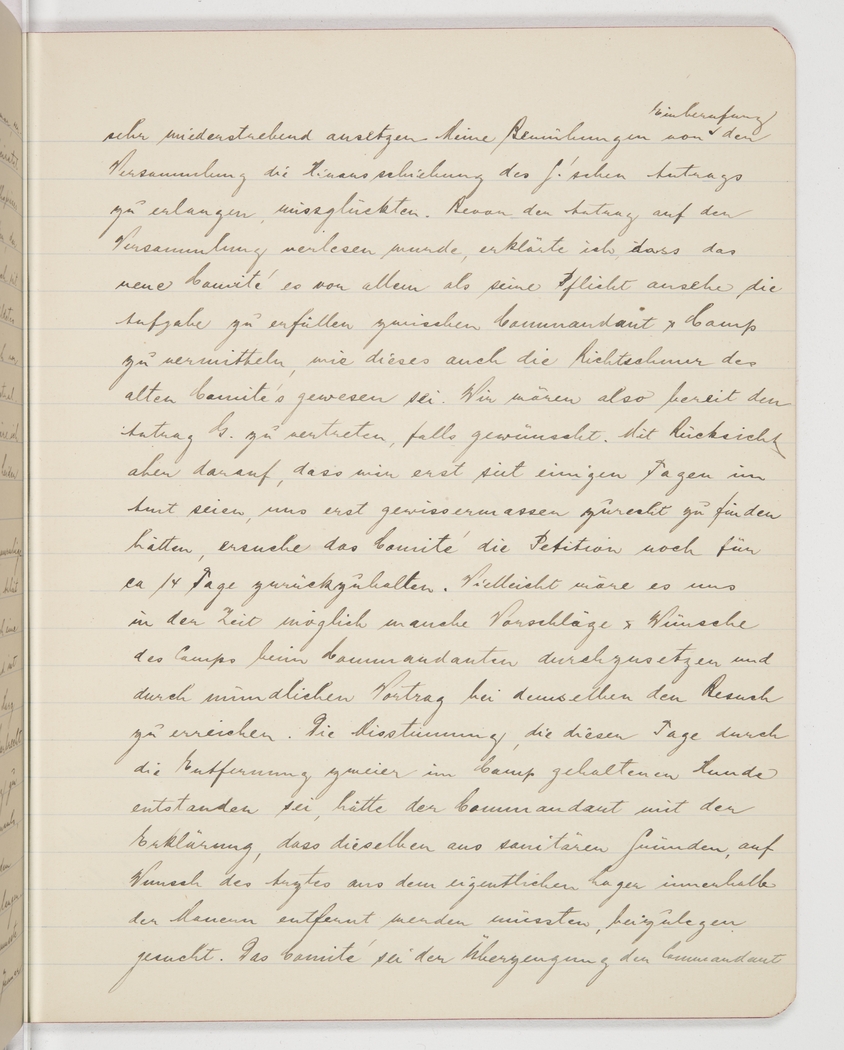 Einberufung
sehr wiederstrebend ansetzen. Meine Bemühungen vor der
Versammlung die Hinausschiebung des G.'schen Antrags
zu erlangen, missglückten. Bevor der Antrag auf der
Versammlung verlesen wurde, erklärte ich, dass das
neue Comité es vor allem als seine Pflicht ansehe die
Aufgabe zu erfüllen zwischen Commandant & Camp
zu vermitteln, wie dieses auch die Richtschnur des
alten Comité's gewesen sei. Wir wären also bereit den
Antrag G. zu vertreten, falls gewünscht. Mit Rücksicht
aber darauf, dass wir erst seit einigen Tagen im
Amt seien, uns erst gewissermassen zurecht zu finden
hätten, ersuche das Comité die Petition noch für
ca 14 Tage zurückzuhalten. Vielleicht wäre es uns
in der Zeit möglich manche Vorschläge & Wünsche
des Camps beim Commandanten durchzusetzen und
durch mündlichen Vortrag bei demselben den Besuch
zu erreichen. Die Misstimmung, die diesen Tage durch
die Entfernung zweier im Camp gehaltenen Hunde
entstanden sei, hätte der Commandant mit der
Erklärung, dass dieselben aus sanitären Gründen, auf
Wunsch des Arztes aus dem eigentlichen Lager innerhalb
der Mauern entfernt werden müssten, beizulegen
gesucht. Das Comité sei der Überzeugung der Commandant